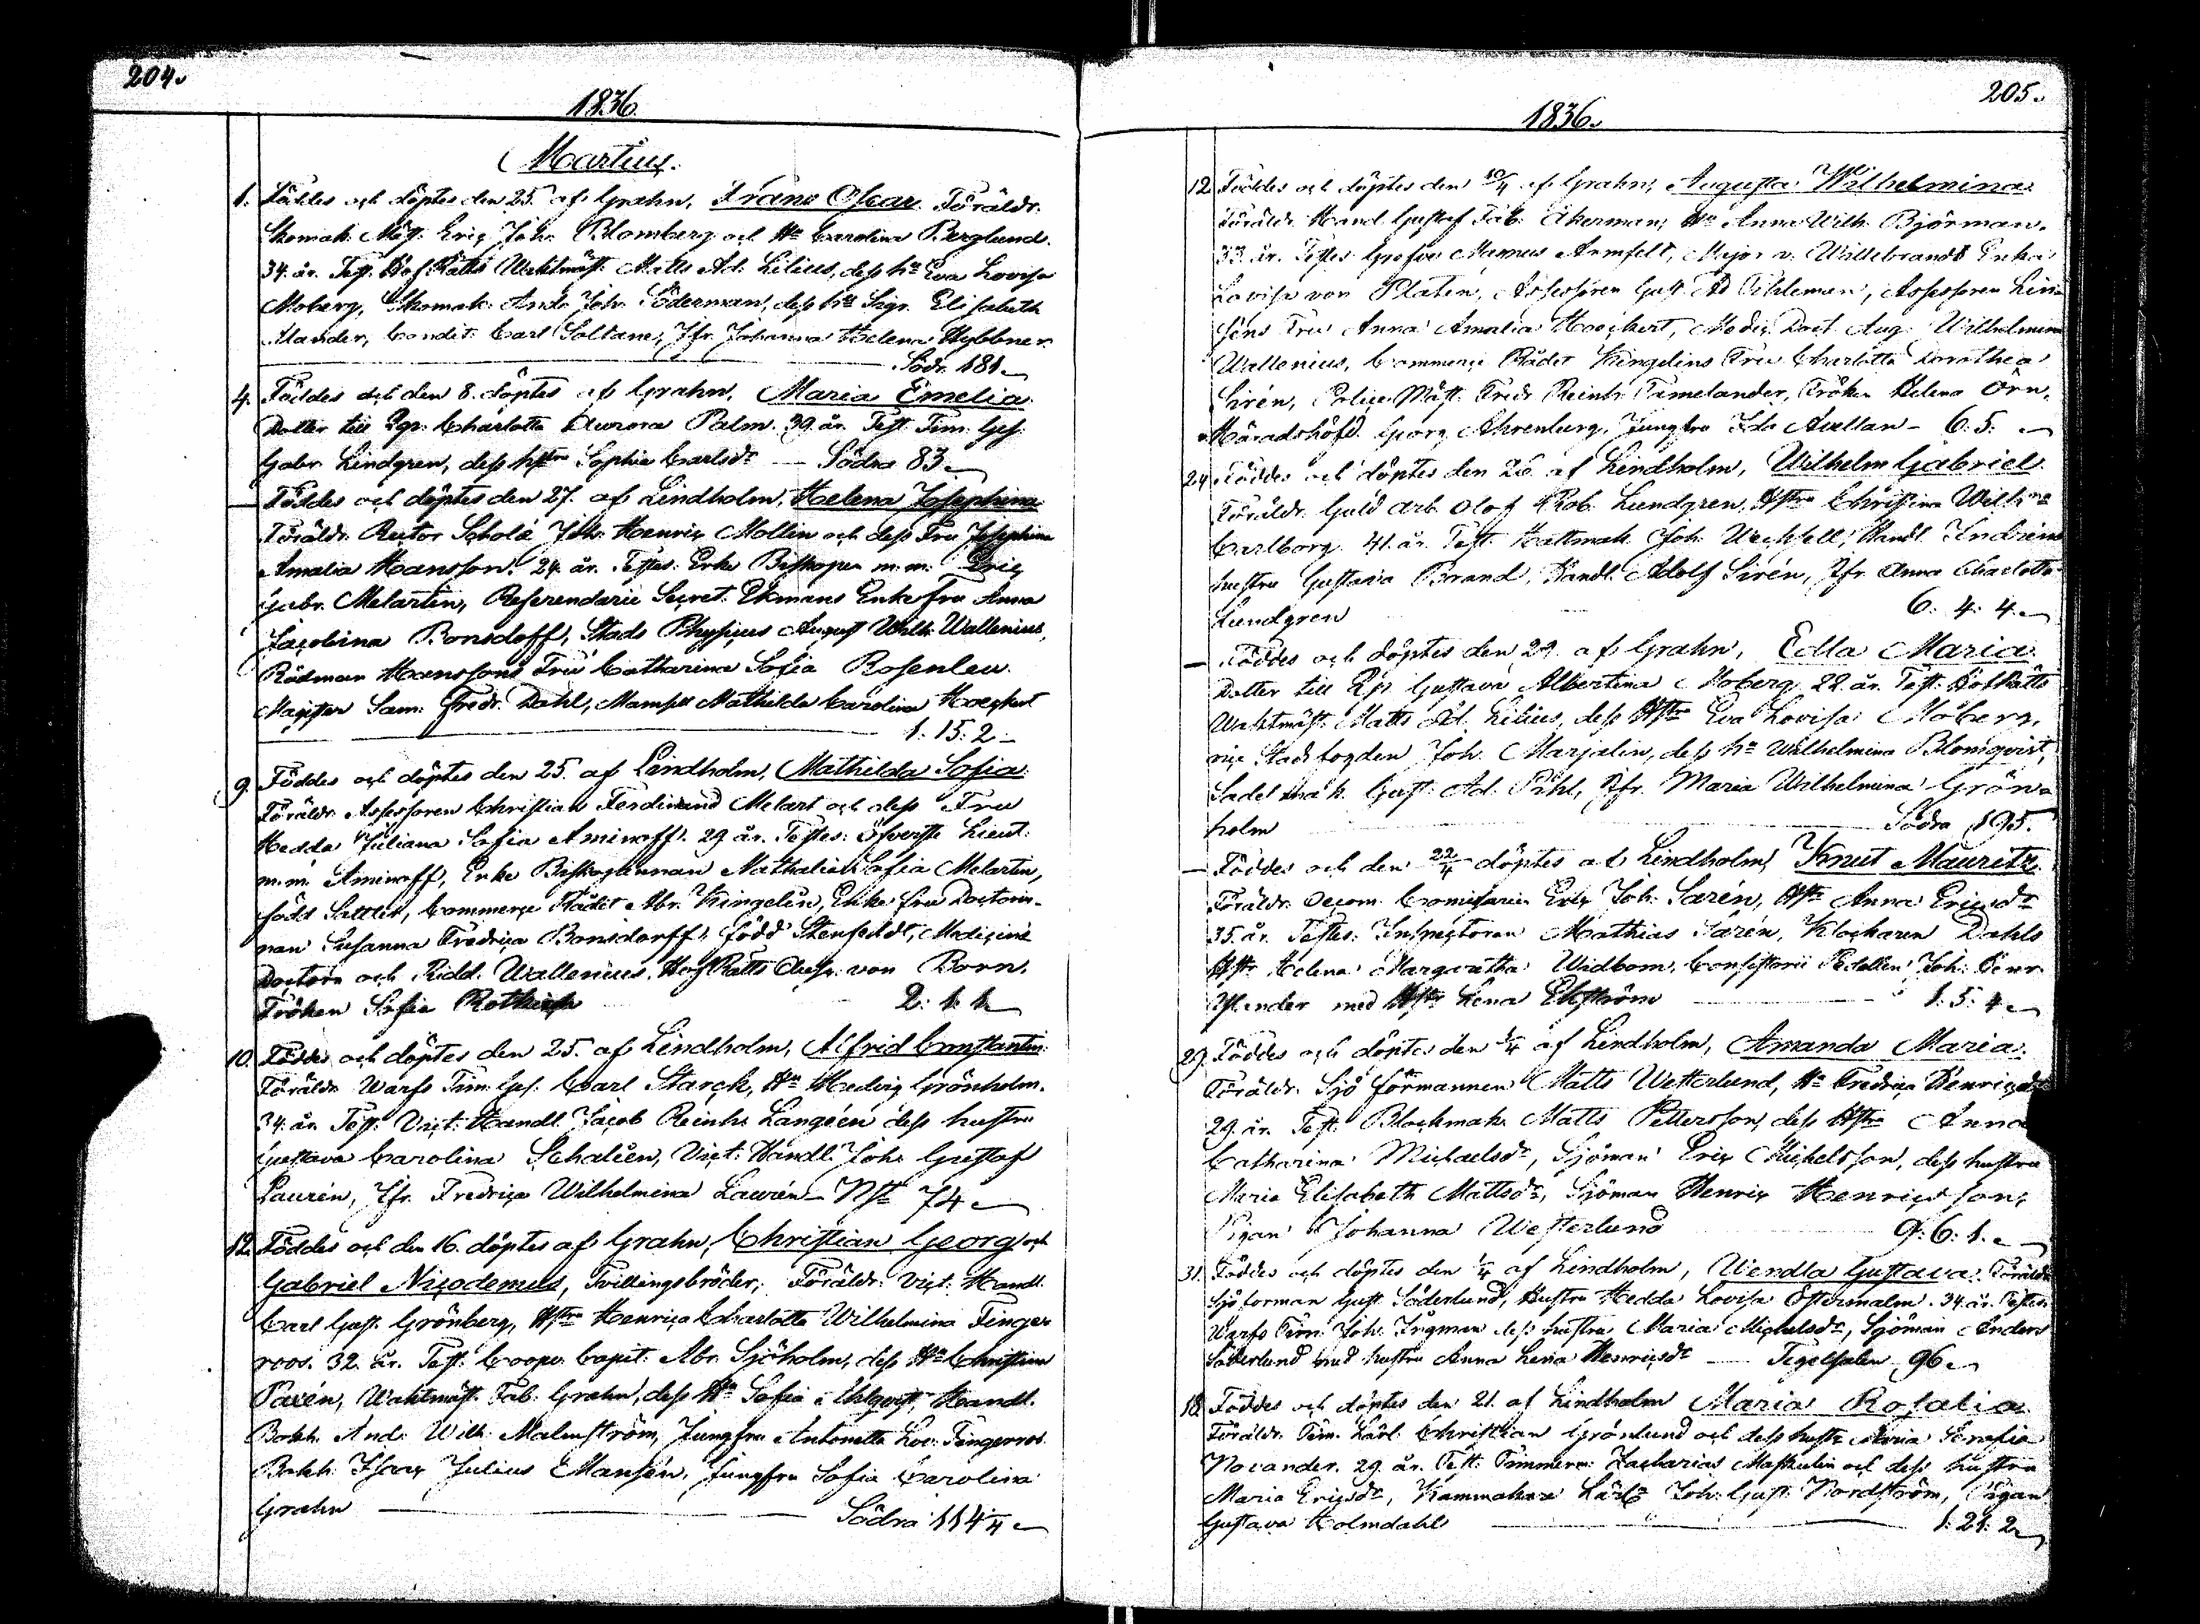 204.
1836.
Martius.
1. Föddes och döptes den 25. af Grahn, Frans Oscar. Föräldr.
Skomak. Mäst. Eric Joh. Blomberg och Hu Carolina Berglund.
34. år. Test. Hof Rätts Waktmäst. Matts Ad. Lilius, dess hu Eva Lovisa
Moberg, Skomak. And. Joh. Söderman, dess hu Sigr. Elisabeth
Alander, Condit. Carl Soltane, Jfr. Johanna Helena Hybbner.
Södr. 181.
4. Föddes och den 8. döptes af Grahn, Maria Emelia.
Dotter till Pgr. Charlotta Aurora Palm. 39. år. Test. Tim. Ges.
Gabr. Lindgren, dess hstru Sophia Carlsdr Södra 83.
— Föddes och döptes den 27. af Lindholm, Helena Josephina
Föräldr. Rector Scholæ Joh. Henric Mollin och dess Fru Josephina
Amalia Hansson. 24. år. Testes. Erke Biskopen m.m. Eric
Gabr. Melartin, Referendarie Secret. Ekmans Enkefru Anna
Jacobina Bonsdoff, Stads Physicus August Wilh. Wallenius,
Rådman Hanssons Fru Catharina Sofia Rosenlew.
Magister Sam. Fredr. Dahl, Mamsell Mathilda Carolina Hoeckert
1. 15. 2.
9. Föddes och döptes den 25. af Lindholm, Mathilda Sofia.
Föräldr. Assessoren Christian Ferdinand Melart och dess Fru
Hedda Juliana Sofia Aminoff. 29 år. Testes: Öfverste Lieut.
m.m. Aminoff, Erke Biskopinnan Nathalia Sofia Melartin,
född Commerce Rådet Abr. Kingelin, Enke fru Doctorin-
nan Susanna Fredrica Bonsdorff, född Medicine
Doctorn och Ridd. Wallenius. Hof Rätts von Born.
Fröken Sofia Rotkirch 2. 1. 1.
10. Föddes och döptes den 25. af Lindholm, Alfrid Constantin.
Föräldr. Warfs Tim. Ges. Carl Starck, Hu Hedvig Grönholm.
34. år. Test. Vict. Handl. Jacob Reinh. Langéen dess hustru
Gustava Carolina Schalien, Vict. Handl. Joh. Gustaf
Laurén, Jfr. Fredrica Wilhelmina Laurén — 74.
12. Föddes och den 16. döptes af Grahn, Christian Georg och
Gabriel Nicodemus, Tvillingsbröder; Föräldr. Vict. Handl.
Carl Gust. Grönberg, Hstru Henrica Charlotta Wilhelmina Finge-
roos. 32. år. Test. Coop. Capit. Abr. Sjöholm, dess Hu Christina
Waktmäst. Fab. Grahn, dess Hu Sofia Handl.
Bokh. And. Wilh. Malmström, Jungfru Antonetta Lov. Fingerroos.
Bokh. Isac Julius Hansén, Jungfru Sofia Carolina
Grahn Södra 114
205.
1836.
12. Föddes och döptes den 10/4 af Grahn, Augusta Wilhelmina.
Föräldr. Hand. Gustaf Fab. Åkerman, Hu Anna Wilh. Björman.
33. år. Testes Grefve Magnus Armfelt, Major v. Willebrands Enka
Lovisa von Platen, Assessoren Gust. Ad. Pihleman, Assessoren
Fru Anna Amalia Hoeckert, Medic. Doct. Aug. Wilhelm
Wallenius, Commerce Rådet Kingelins Fru Charlotta Dorothea
Sirén, Police Mäst. Fredr. Reinh. Tamelander, Fröken Helena Örn,
Häradshöfd. Georg Ahrenburg, Jungfru Ida Avellan — 6. 5.
24. Föddes och döptes den 26. af Lindholm, Wilhelm Gabriel.
Föräldr. Guld Arb. Olof Rob. Lundgren, Hstru Christina Wilhma
Carlborg. 41. år. Test. Hattmak. Joh. Handl.
hustru Gustava Brand, Handl. Adolf Sirén, Jfr. Anna Charlotta
Lundgren 6. 4. 4.
— Föddes och döptes den 29. af Grahn, Edla Maria.
Dotter till Gustava Albertina Moberg. 22. år. Test. Hof Rätts
Waktmäst. Matts Ad. Lilius, dess Hstru Eva Lovisa Moberg,
vice Stadsfogden Joh. Marjalen, dess hu Wilhelmina Blomqvist,
Sadelmak. Gust. Ad. Pihl, Jfr. Maria Wilhelmina Grön-
holm Södra 195.
— Föddes och den 22/4 döptes af Lindholm, Knut Mauritz.
Föräldr. Oecon. Comissarie Eric Joh. Sarén, Hu Anna Ericsdr
35. år. Testes. Inspectoren Mathias Sarén, Klockaren Dahls
Hstr. Helena Margaretha Widbom, Consistorii Pedellen Joh. Henr.
med Hstru Lena Ekström 1. 5. 4.
29. Föddes och döptes den 4/4 af Lindholm, Amanda Maria.
Föräldr. Sjöförmannen Matts Wetterlund, Hu Fredrica Henricsdr
29. år. Test. Blockmak. Matts Pettersson, dess Hstru Anna
Catharina Michaelsdr, Sjöman Eric Mickelsson, dess hustru
Maria Elisabeth Mattsdr, Sjöman Henric Henricsson,
Pigan Johanna Westerlund 9. 6. 1.
31. Föddes och döptes den 4/4 af Lindholm, Wendla Gustava. Föräldr.
Sjöforman Gust. Söderlund, Hustru Hedda Lovisa Östermalm. 34. år. Testes.
Warfs Tim. Joh. Ingman dess hustru Maria Michelsdr, Sjöman Anders
Söderlund med hustru Anna Lena Henricsdr — Tegelsalen 96.
18. Föddes och döptes den 21. af Lindholm Maria Rosalia.
Föräldr. Tim. Kárl. Christian Grönlund och dess hustr. Maria Serafia
Novander. 29. år. Test. Timmerm. Zacharias Maskulin och dess hustru
Maria Ericsdr, Kammakare Joh. Gust. Nordström, Pigan
Gustava Holmdahl 1. 21. 2.